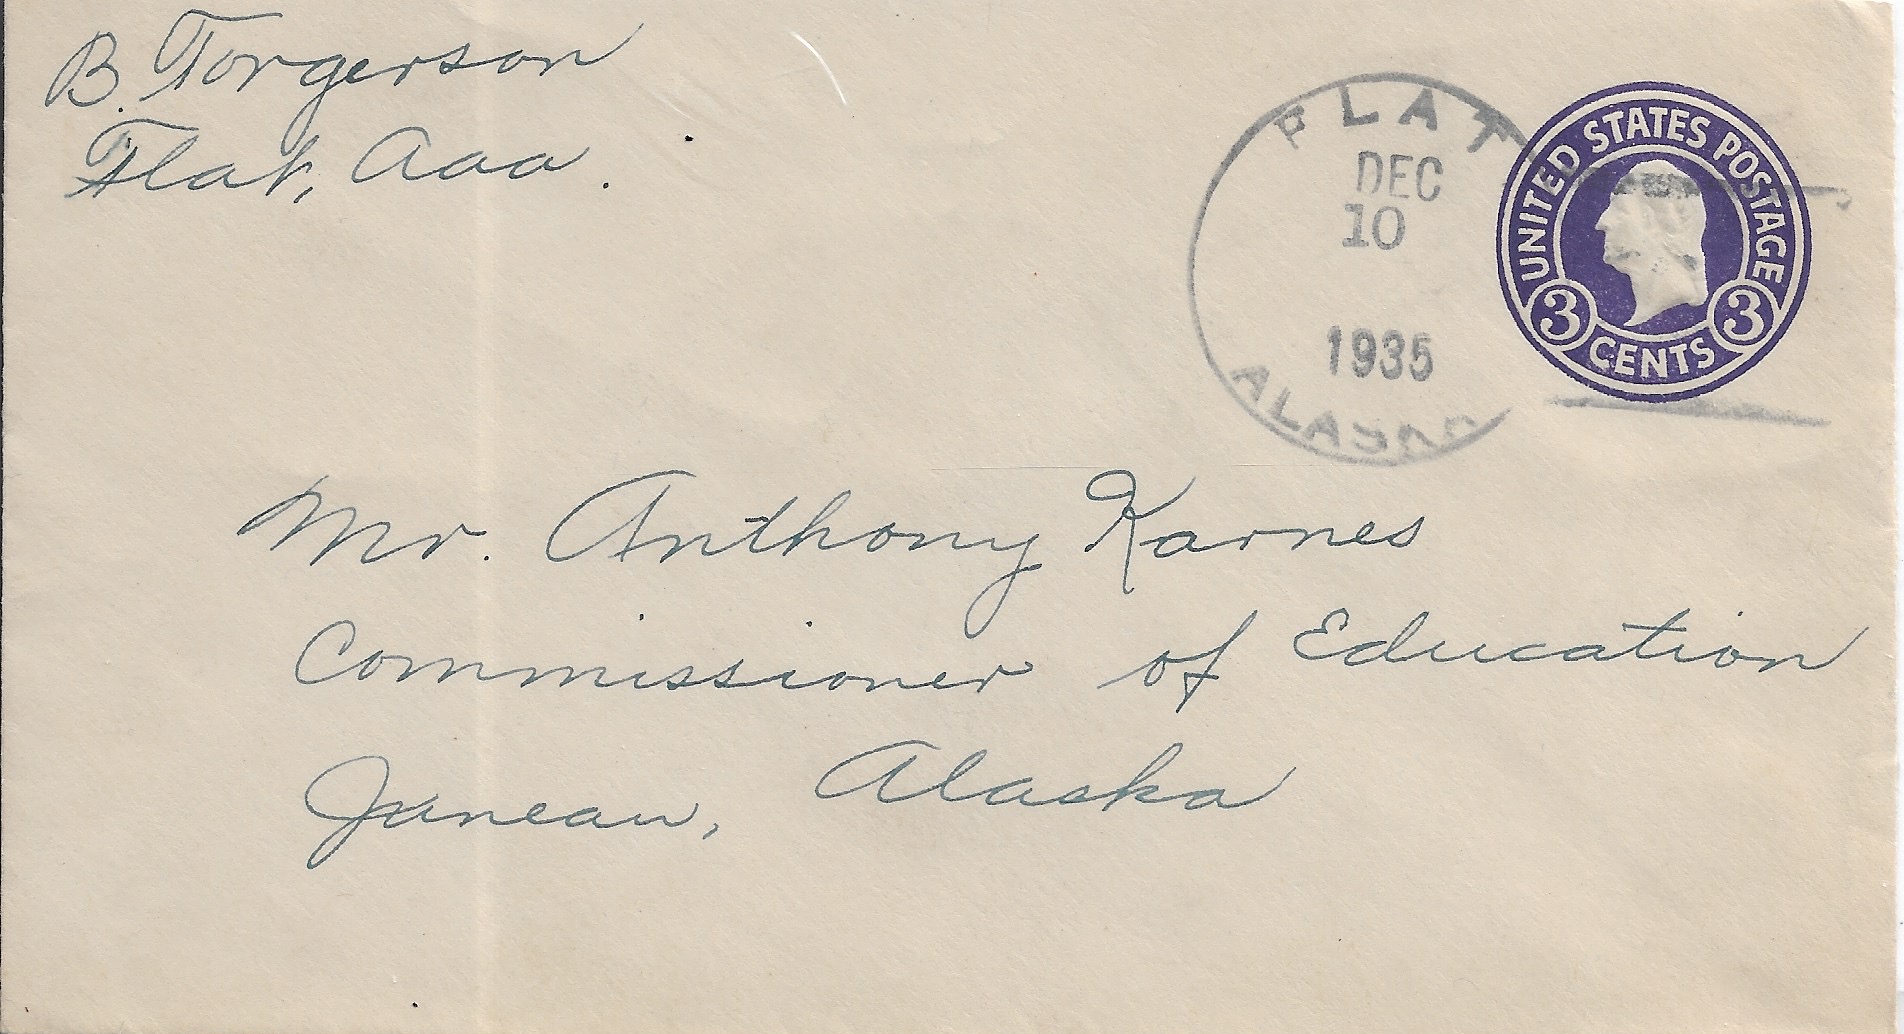 B. Torgerson
Flat, Aaa.
FLAT
DEC
10
1935
ALASKA
UNITED STATES POSTAGE
3 CENTS 3
Mr. Anthony Karnes
Commissioner of Education
Juneau, Alaska